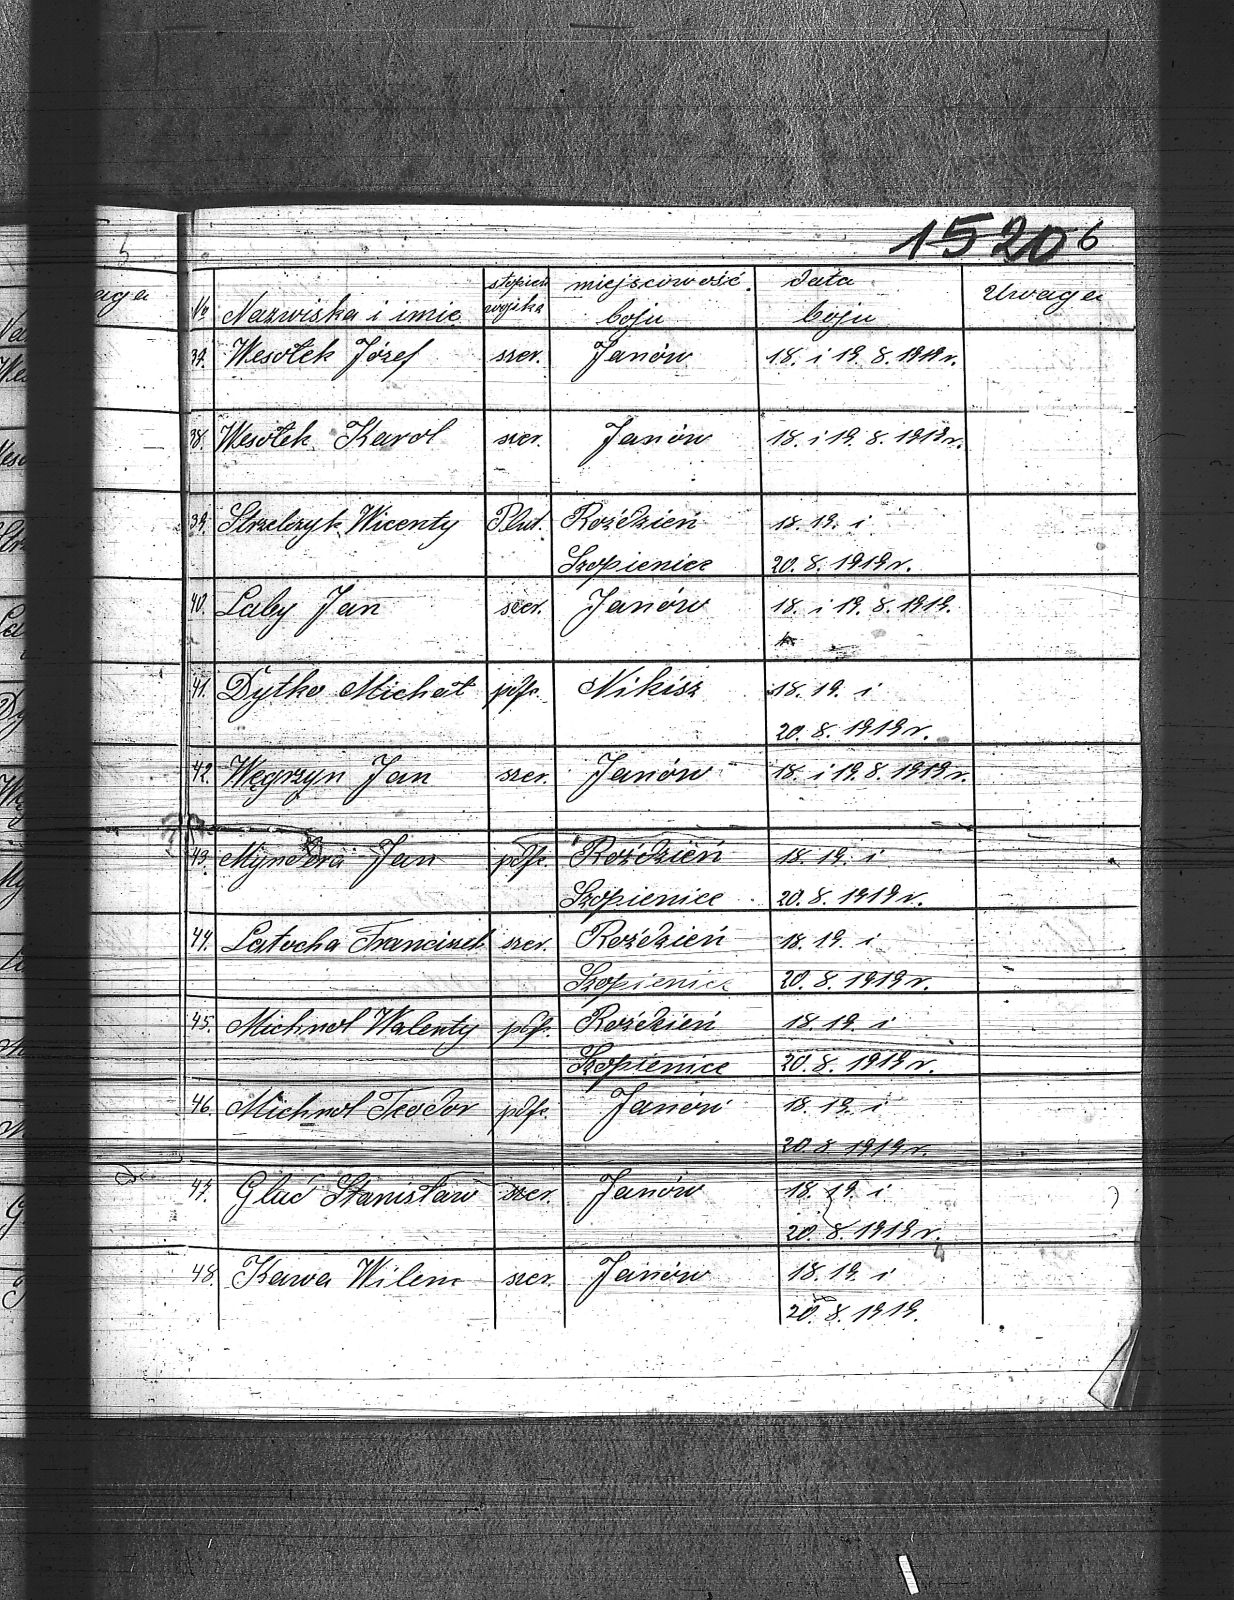 1520 6
№ Nazwiska i imie stopień wojska miejscowość boju data boju Uwaga
37. Wesołek Józef szer. Janów 18. i 19. 8. 1919 r.
38. Wesołek Karol szer. Janów 18. i 19. 8. 1919 r.
39. Strzelczyk Wicenty Plut. Roździeń 18. 19. i
Szopienice 20. 8. 1919 r.
40. Laby Jan szer. Janów 18. i 19. 8. 1919.
41. Dytko Michał pdfr. Nikisz 18. 19. i
20. 8. 1919 r.
42. Węgrzyn Jan szer. Janów 18. i 19. 8. 1919 r.
43. Jan pdfr. Roździeń 18. 19. i
Szopienice 20. 8. 1919 r.
44. Latocha Franciszek szer. Roździeń 18. 19. i
Szopienice 20. 8. 1919 r.
45. Michnol Walenty pdfr. Roździeń 18. 19. i
Szopienice 20. 8. 1919 r.
46. Michnol Teodor pdfr. Janów 18. 19. i
20. 8. 1919 r.
47. Gluć Stanisław szer. Janów 18. 19. i
20. 8. 1919 r.
48. Kawa Wilem szer. Janów 18. 19. i
20. 8. 1919.